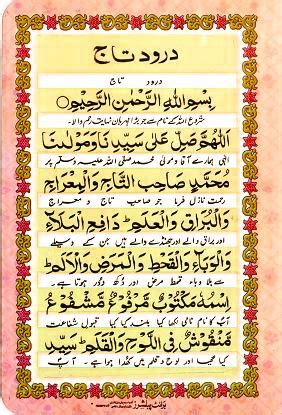 درود تاج
درود تاج
بِسْمِ اللهِ الرَّحْمٰنِ الرَّحِيْمِ
شروع اللہ کے نام سے جو بڑا مہربان نہایت رحم والا۔
اَللّٰهُمَّ صَلِّ عَلٰى سَيِّدِنَا وَمَوْلٰىنَا
الٰہی ہمارے آقا و مولٰی محمد صلی اللہ علیہ وسلم پر
مُحَمَّدٍ صَاحِبِ التَّاجِ وَالْمِعْرَاجِ
رحمت نازل فرما جو صاحب تاج و معراج
وَالْبُرَاقِ وَالْعَلَمِ دَافِعِ الْبَلَاءِ
اور براق والے اور جھنڈے والے ہیں جن کے وسیلے
وَالْوَبَاءِ وَالْقَحْطِ وَالْمَرَضِ وَالْاَلَمِ
سے بلا وباء قحط مرض اور دکھ دور ہوتا ہے۔
اِسْمُهٗ مَكْتُوْبٌ مَّرْفُوْعٌ مَّشْفُوْعٌ
آپ کا نام نامی لکھا گیا بلند کیا گیا قبول شفاعت
مَّنْقُوْشٌ فِى اللَّوْحِ وَالْقَلَمِ سَيِّدِ
کیا گیا اور لوح و قلم میں کھدا ہوا ہے۔ آپ